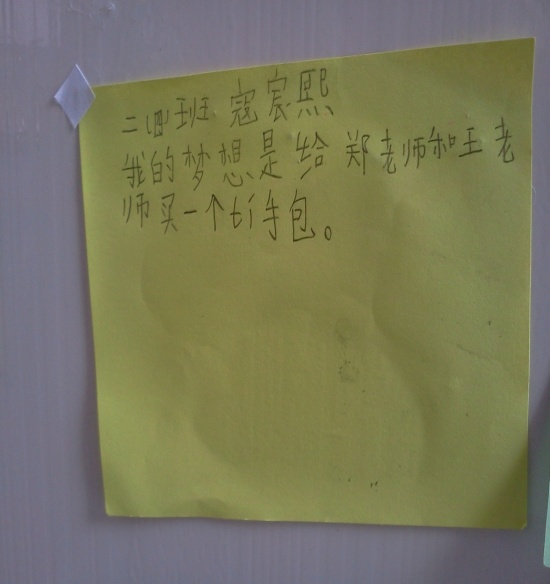 二四班 寇宸熙
我的梦想是给郑老师和王老
师买一个bì手包。